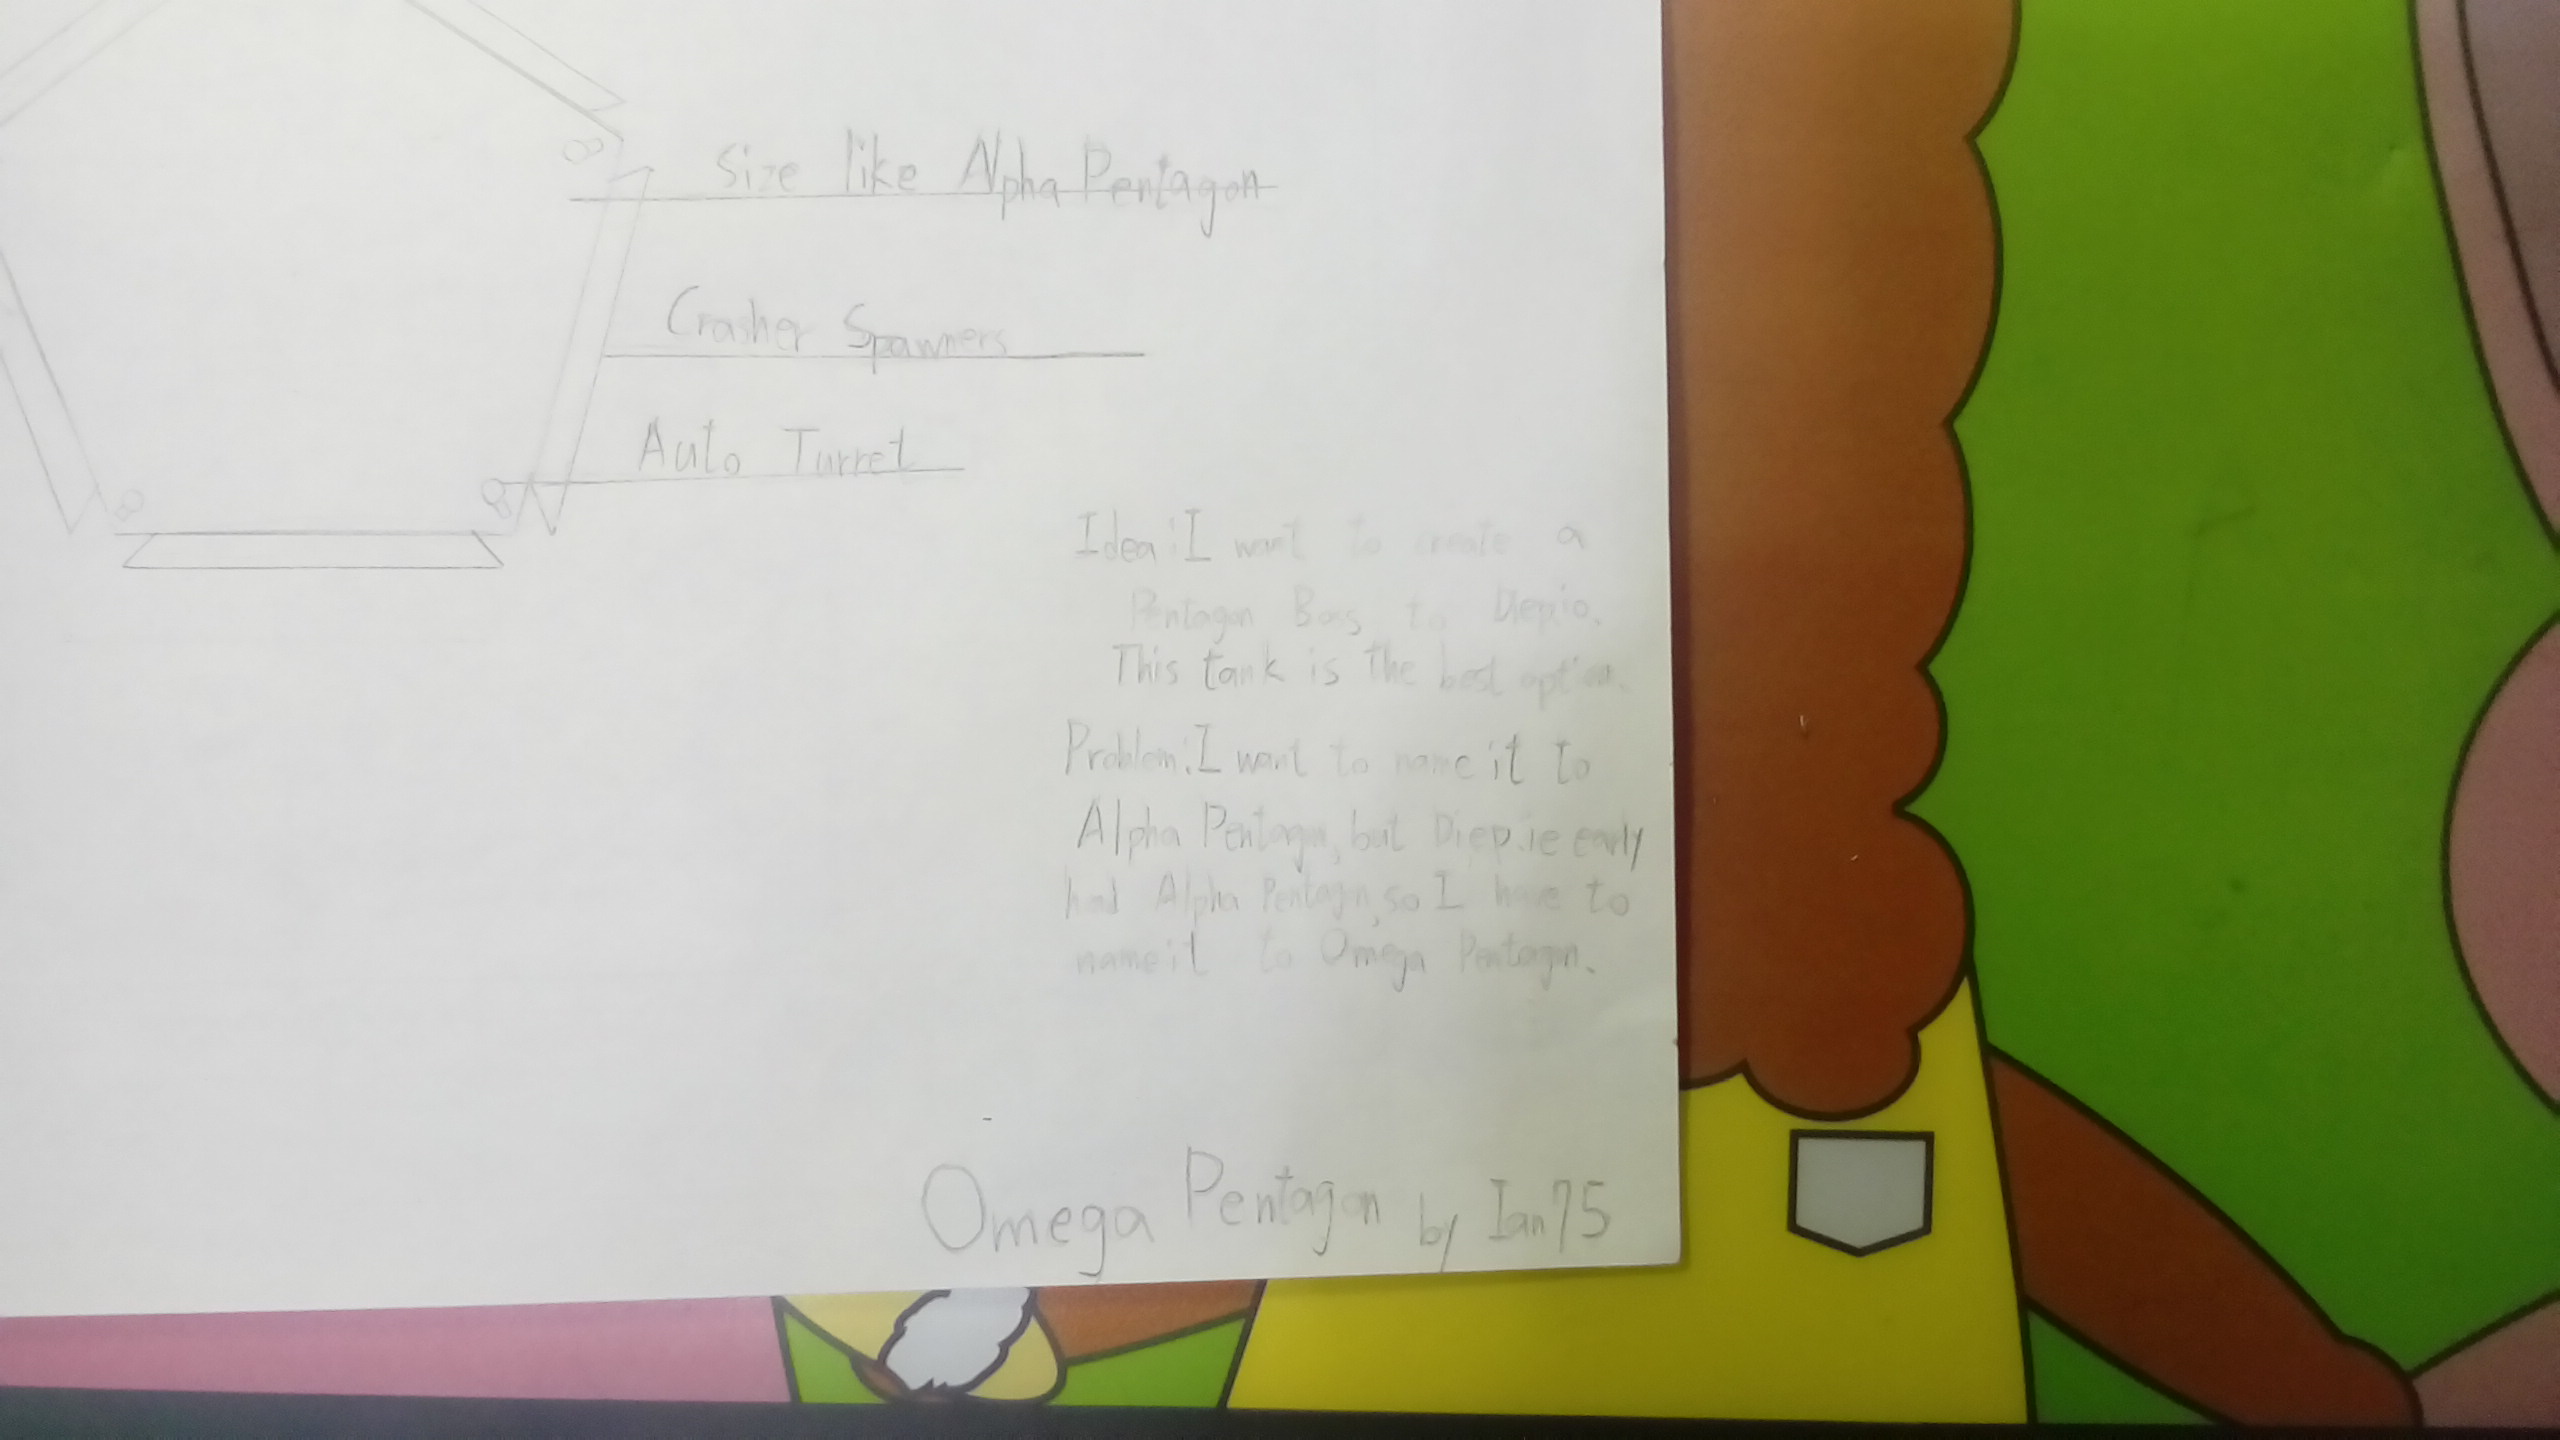 Size like Alpha Pentagon
Crasher Spawners
Auto Turret
Idea: I want to create a
Pentagon Boss to Diepio.
This tank is the best option.
Problem: I want to name it to
Alpha Pentagon, but Diep.ie early
had Alpha Pentagn, so I have to
name it to Omega Pentagon.
Omega Pentagon by Ian75